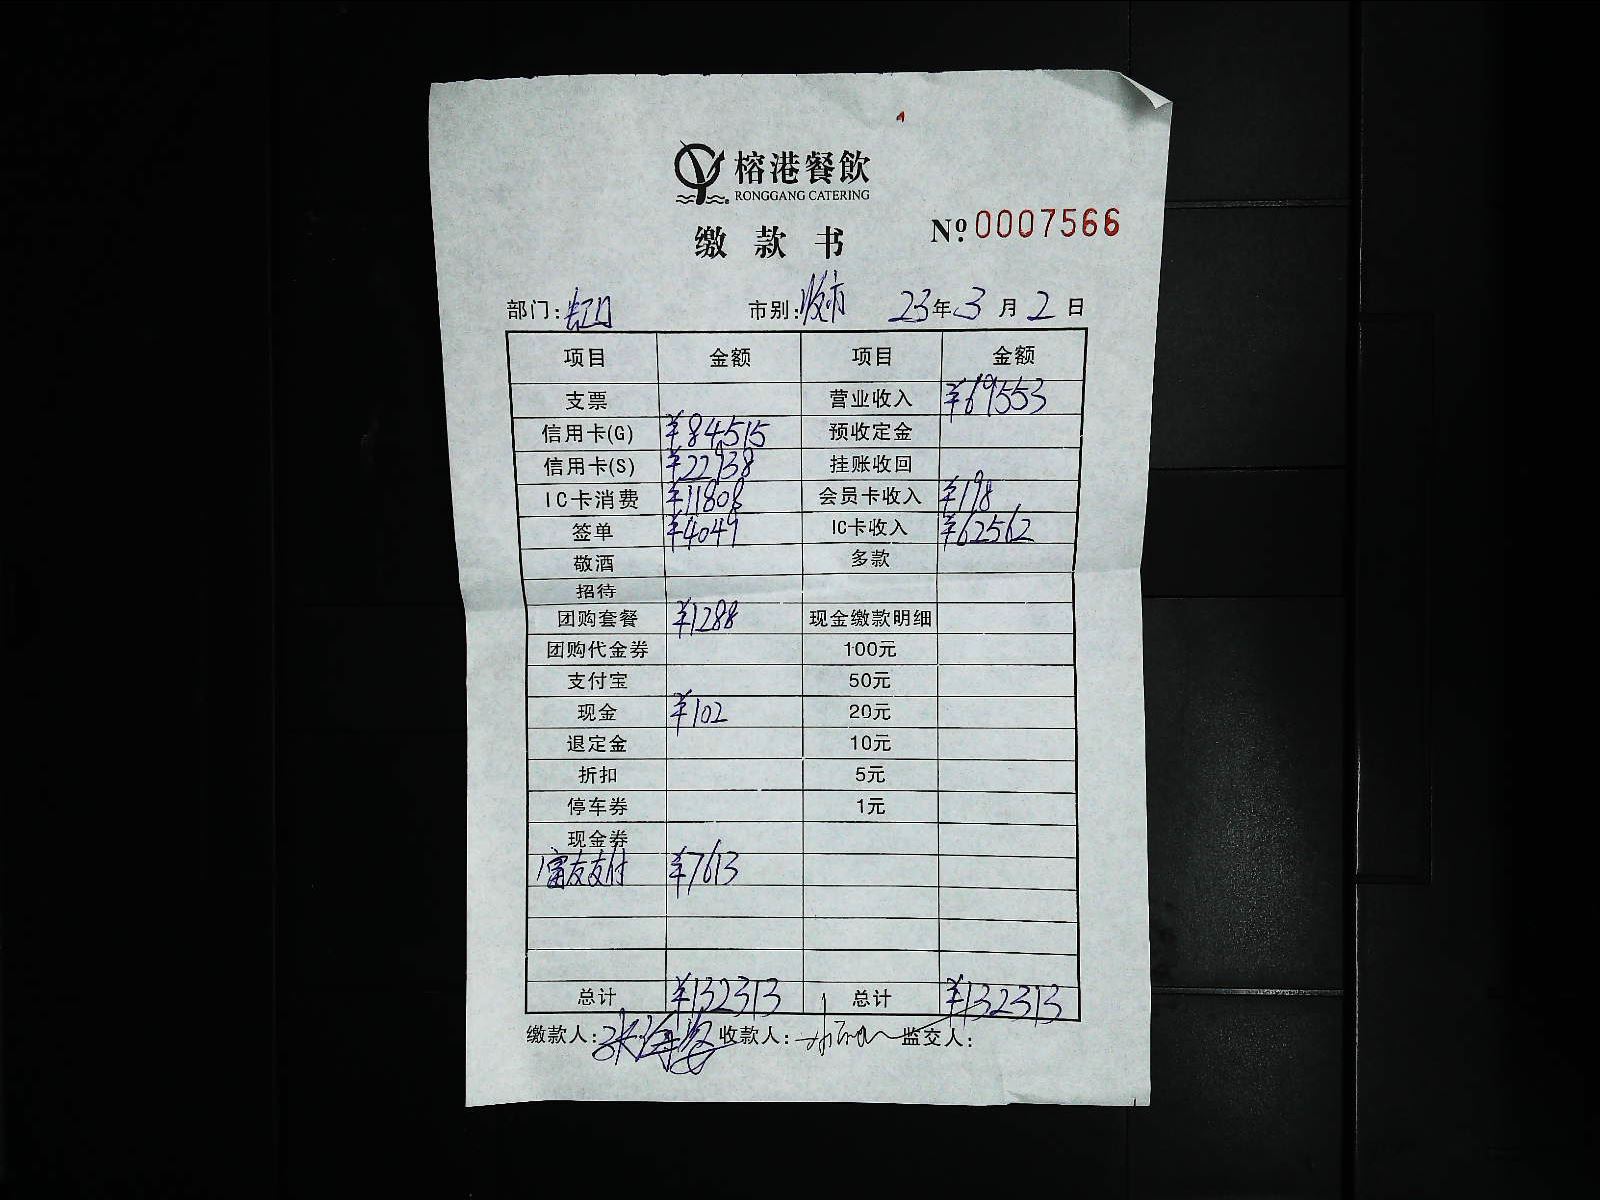 榕港餐飲
RONGGANG CATERING
缴款书
№ 0007566
部门: 市别:收市 23年3月2日
项目 金额 项目 金额
支票 营业收入 ¥69553
信用卡(G) ¥84515 预收定金
信用卡(S) ¥22938 挂账收回
IC卡消费 ¥11808 会员卡收入 ¥198
签单 ¥4049 IC卡收入 ¥62562
敬酒 多款
招待
团购套餐 ¥1288 现金缴款明细
团购代金券 100元
支付宝 50元
现金 ¥102 20元
退定金 10元
折扣 5元
停车券 1元
现金券
富友支付 ¥7613
总计 ¥132313 总计 ¥132313
缴款人: 收款人: 监交人: